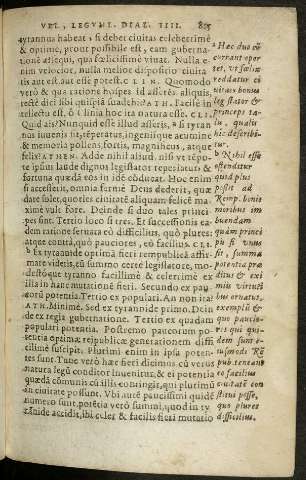 VEL, LEGVM. DIAL. IIII. 805
tyrannus habeat, si debet ciuitas celeberrimè
& optimè, prout possibile est, eam gubernationē
adsequi, qua fœlicissimè viuat. Nulla enim
velocior, nulla melior dispositio ciuitatis
aut est aut esse potest. CLIN. Quomodo
verò & qua ratione hospes id asserēs, aliquis
recte dici sibi quispiā suadebit? ATH. Facile intellectu
est, ô Clinia hoc ita natura esse. CLI.
Quid ais? Nunquid esse illud asseris, si tyrannus
iuuenis sit, tēperatus, ingenio que acumine
& memoria pollens, fortis, magnificus, atque
felix? ATHEN. Adde nihil aliud, nisi vt tēpore
ipsius laude dignus legislator reperiatur: &
fortuna quædā eos in idē cōducat. Hoc enim
si accesserit, omnia fermè Deus dederit, quæ
dare solet, quoties ciuitatē aliquam felicē maximè
vult fore. Deinde si duo tales principes
sint. Tertio loco si tres. Et successionis eadem
ratione seruata eò difficilius, quò plures:
atque contrà, quò pauciores, eò facilius. CLI.
Ex tyrannide optima fieri rempublicā affirmare
videris, cū summo certè legislatore, modestóque
tyranno facillimè & celerrimè ex
illa in hanc mutatione fieri. Secundo ex paucorū
potentia. Tertio ex populari. An non ita?
ATH. Minimè. Sed ex tyrannide primo. Deinde
ex regia gubernatione. Tertio ex quadam
populari potentia. Postremo paucorum potentia
optimæ reipublicæ generationem difficillimè
suscipit. Plurimi enim in ipsa potentes
sunt. Tunc verò hæc fieri dicimus cū verus
natura legū conditor inuenitur, & ei potentia
quædā cōmunis cū illis contingit, qui plurimū
in ciuitate possunt. Vbi autē paucissimi quidē
numero sunt, potētia verò summi, quod in tyrānide
accidit, ibi celer & facilis fieri mutatio
a Hæc duo cū
currant oportet,
vt fœlix
reddatur ciuitas
bonus
legislator &
princeps talis,
qualis
hic describitur.
b Nihil esse
ostenditur
quod plus
possit ad
Remp. bonis
moribus imbuendam
quàm principis
si vnus
sit, summa
potentia præditus
& eximia
virtutibus
ornatus,
exemplū &
quo pauciores
qui quidem
sunt eiusmodi
Rēpub. tenent
eo facilius
ciuitatē constitui
posse,
quo plures
difficilius.